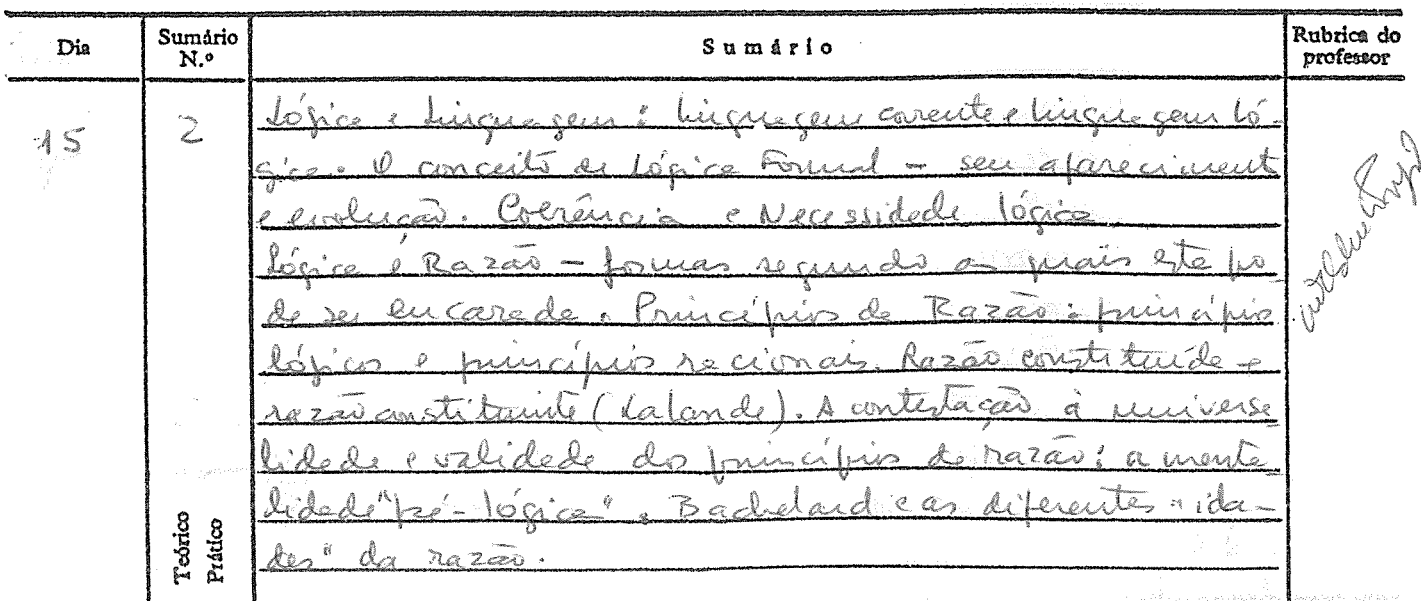 Dia
Sumário N.º
Sumário
Rubrica do professor
15
2
Lógica e Linguagem: linguagem corrente e linguagem ló-
gica. O conceito de Lógica Formal - seu apareciment
e evolução. Coerência e Necessidade lógica
Lógica e Razão - formas segundo as quais esta po
de ser encarada. Princípios da Razão: princípios
lógicos e princípios racionais. Razão constituída e
razão constituinte (Lalande). A contestação à universa
lidade e validade dos princípios da razão: a menta
lidade "pré-lógica". Bachelard e as diferentes "ida-
des" da razão.
Teórico
Prático